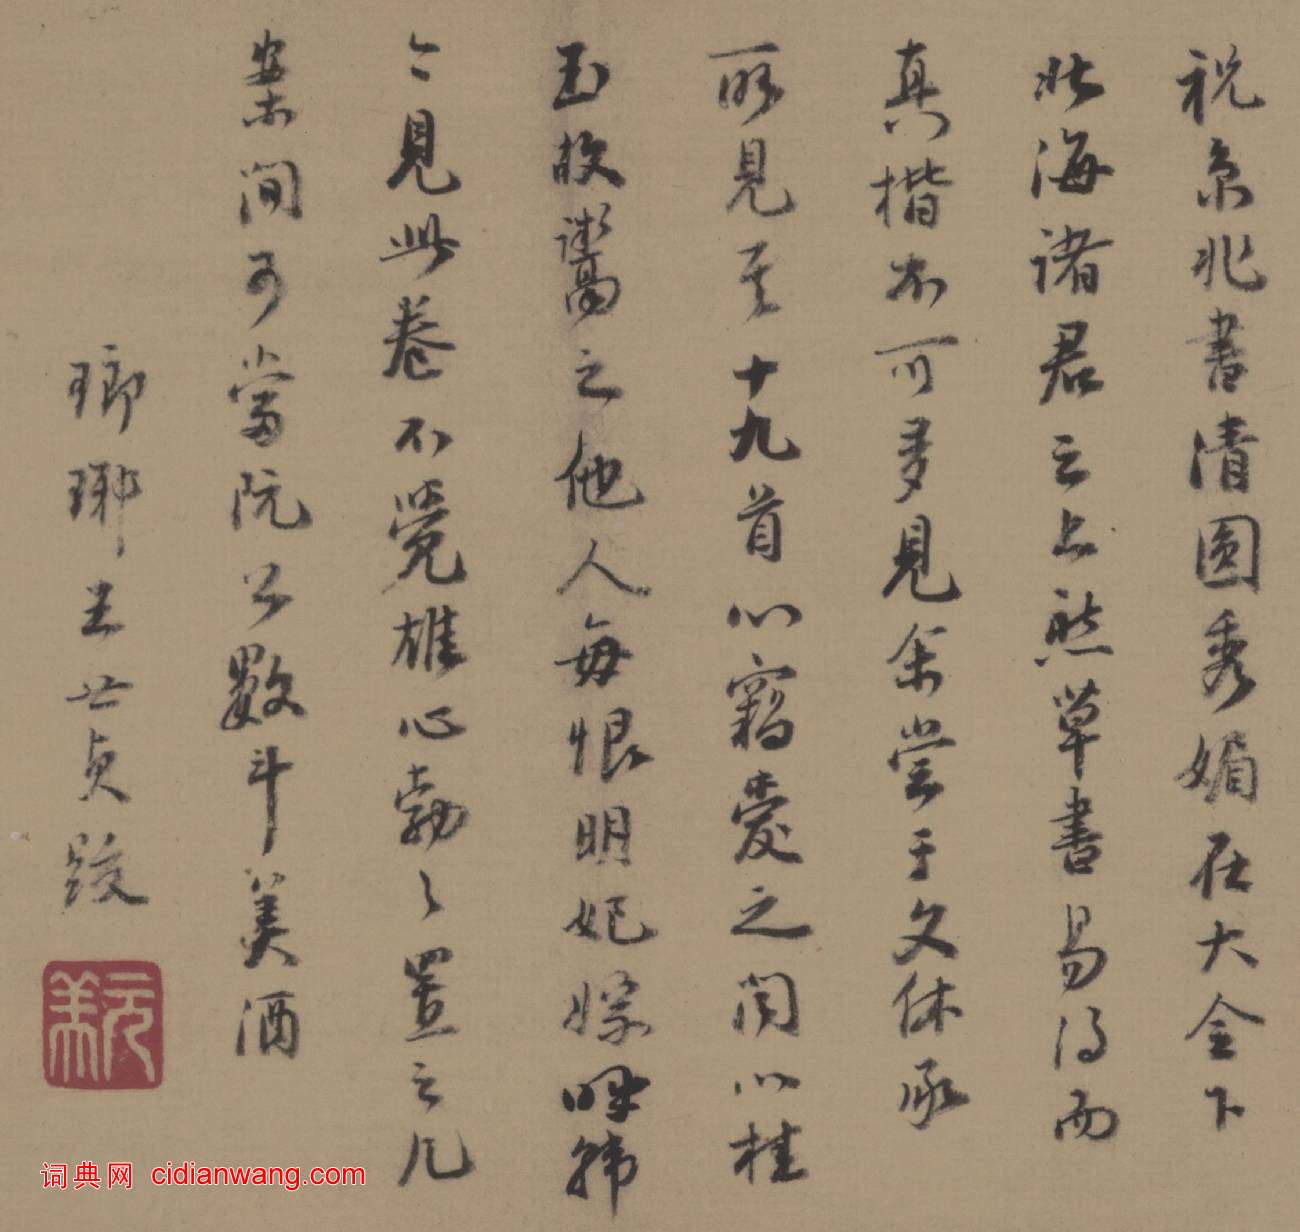 祝京兆書清圓秀媚在大令下
北海諸君之上然草書易得而
真楷不可多見余嘗于文休承
所見其十九首心竊愛之聞以桂
玉故鬻之他人每恨明妃嫁呼韓
〻見此卷不覺雄心勃〻置之几
案間可當阮公數斗美酒
瑯琊王世貞跋
元美
词典网 cidianwang.com